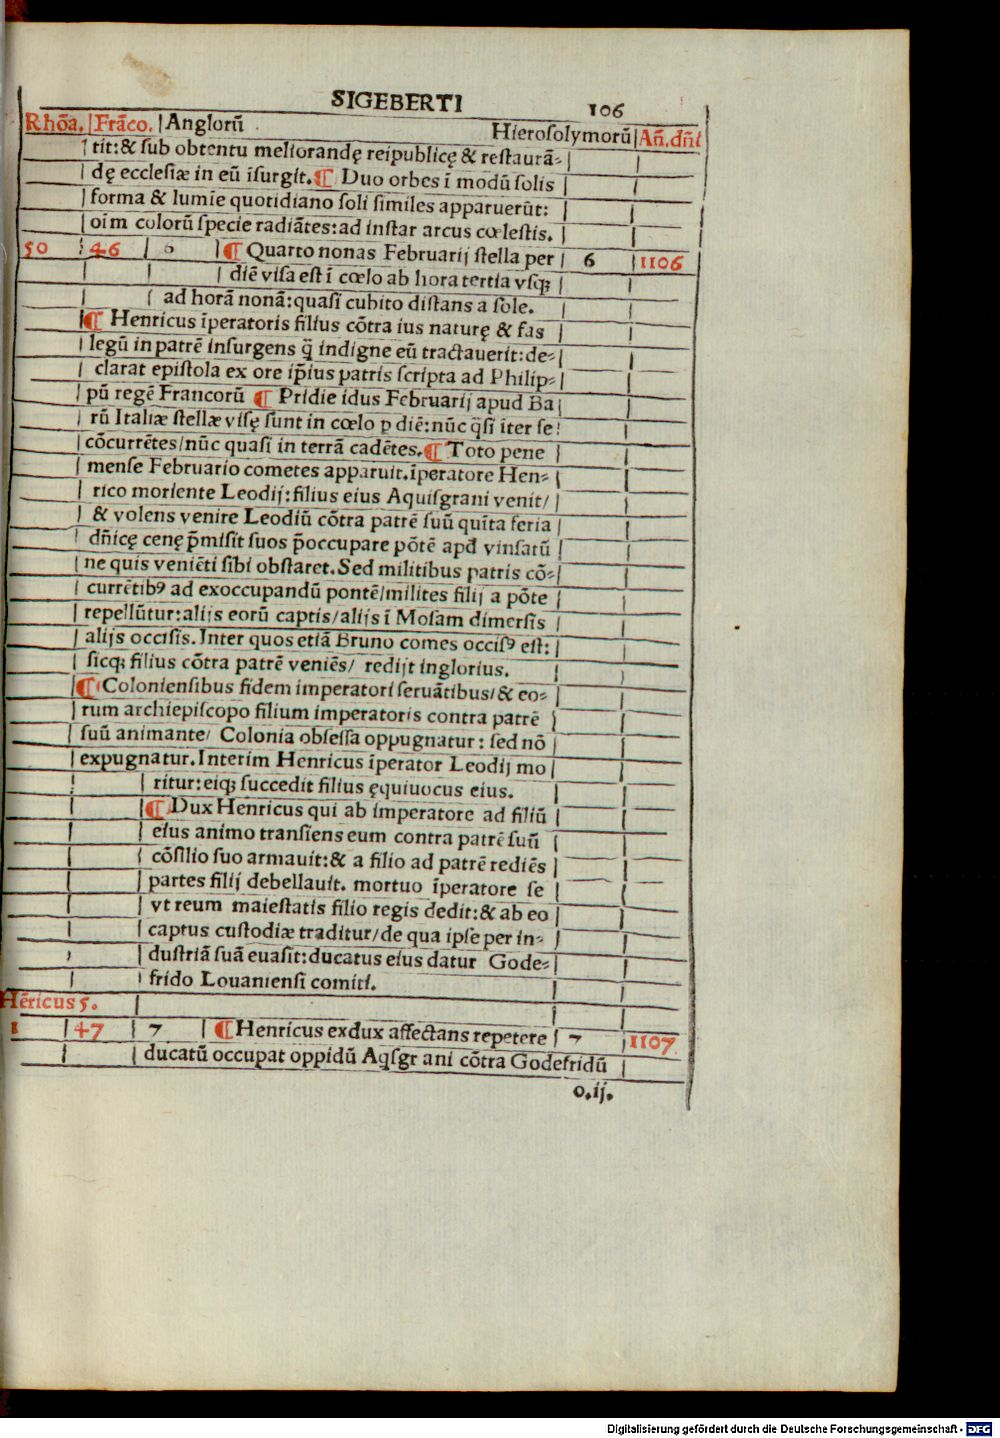 SIGEBERTI 106
Rhōa. Frāco. Anglorū Hierosolymorū Añ.dñi
tit:& sub obtentu meliorandę reipublicę & restaurā-
dę ecclesiæ in eū īsurgit. ¶ Duo orbes ī modū solis
forma & lumīe quotidiano soli similes apparuerūt:
oīm colorū specie radiātes:ad instar arcus cœlestis.
50 46 6 ¶ Quarto nonas Februarij stella per 6 1106
diē visa est ī cœlo ab hora tertia vsq;
ad horā nonā:quasi cubito distans a sole.
¶ Henricus īperatoris filius cōtra ius naturę & fas
legū in patrē insurgens q̄ indigne eū tractauerit:de-
clarat epistola ex ore ip̄ius patris scripta ad Philip-
pū regē Francorū ¶ Pridie idus Februarij apud Ba
rū Italiæ stellæ visę sunt in cœlo p diē:nūc q̄si iter se
cōcurrētes/nūc quasi in terrā cadētes. ¶ Toto pene
mense Februario cometes apparuit.īperatore Hen-
rico moriente Leodij:filius eius Aquisgrani venit/
& volens venire Leodiū cōtra patrē suū quīta feria
dñicę cenę p̄misit suos p̄occupare pōtē apd vinsatū
ne quis veniēti sibi obstaret.Sed militibus patris cō-
currētibꝰ ad exoccupandū pontē/milites filij a pōte
repellūtur:alijs eorū captis/alijs ī Mosam dimersis
alijs occisis.Inter quos etiā Bruno comes occisꝰ est:
sicq; filius cōtra patrē veniēs/ redijt inglorius.
¶ Coloniensibus fidem imperatori seruātibus/& eo-
rum archiepiscopo filium imperatoris contra patrē
suū animante/ Colonia obsessa oppugnatur: sed nō
expugnatur.Interim Henricus īperator Leodij mo
ritur:eiq; succedit filius ęquiuocus eius.
¶ Dux Henricus qui ab imperatore ad filiū
eius animo transiens eum contra patrē suū
cōsilio suo armauit:& a filio ad patrē rediēs
partes filij debellauit. mortuo īperatore se
vt reum maiestatis filio regis dedit:& ab eo
captus custodiæ traditur/de qua ipse per in-
dustriā suā euasit:ducatus eius datur Gode-
frido Louaniensi comiti.
Hēricus 5.
1 47 7 ¶ Henricus exdux affectans repetere 7 1107
ducatū occupat oppidū Aq̄sgr ani cōtra Godefridū
o.ij.
Digitalisierung gefördert durch die Deutsche Forschungsgemeinschaft - DFG